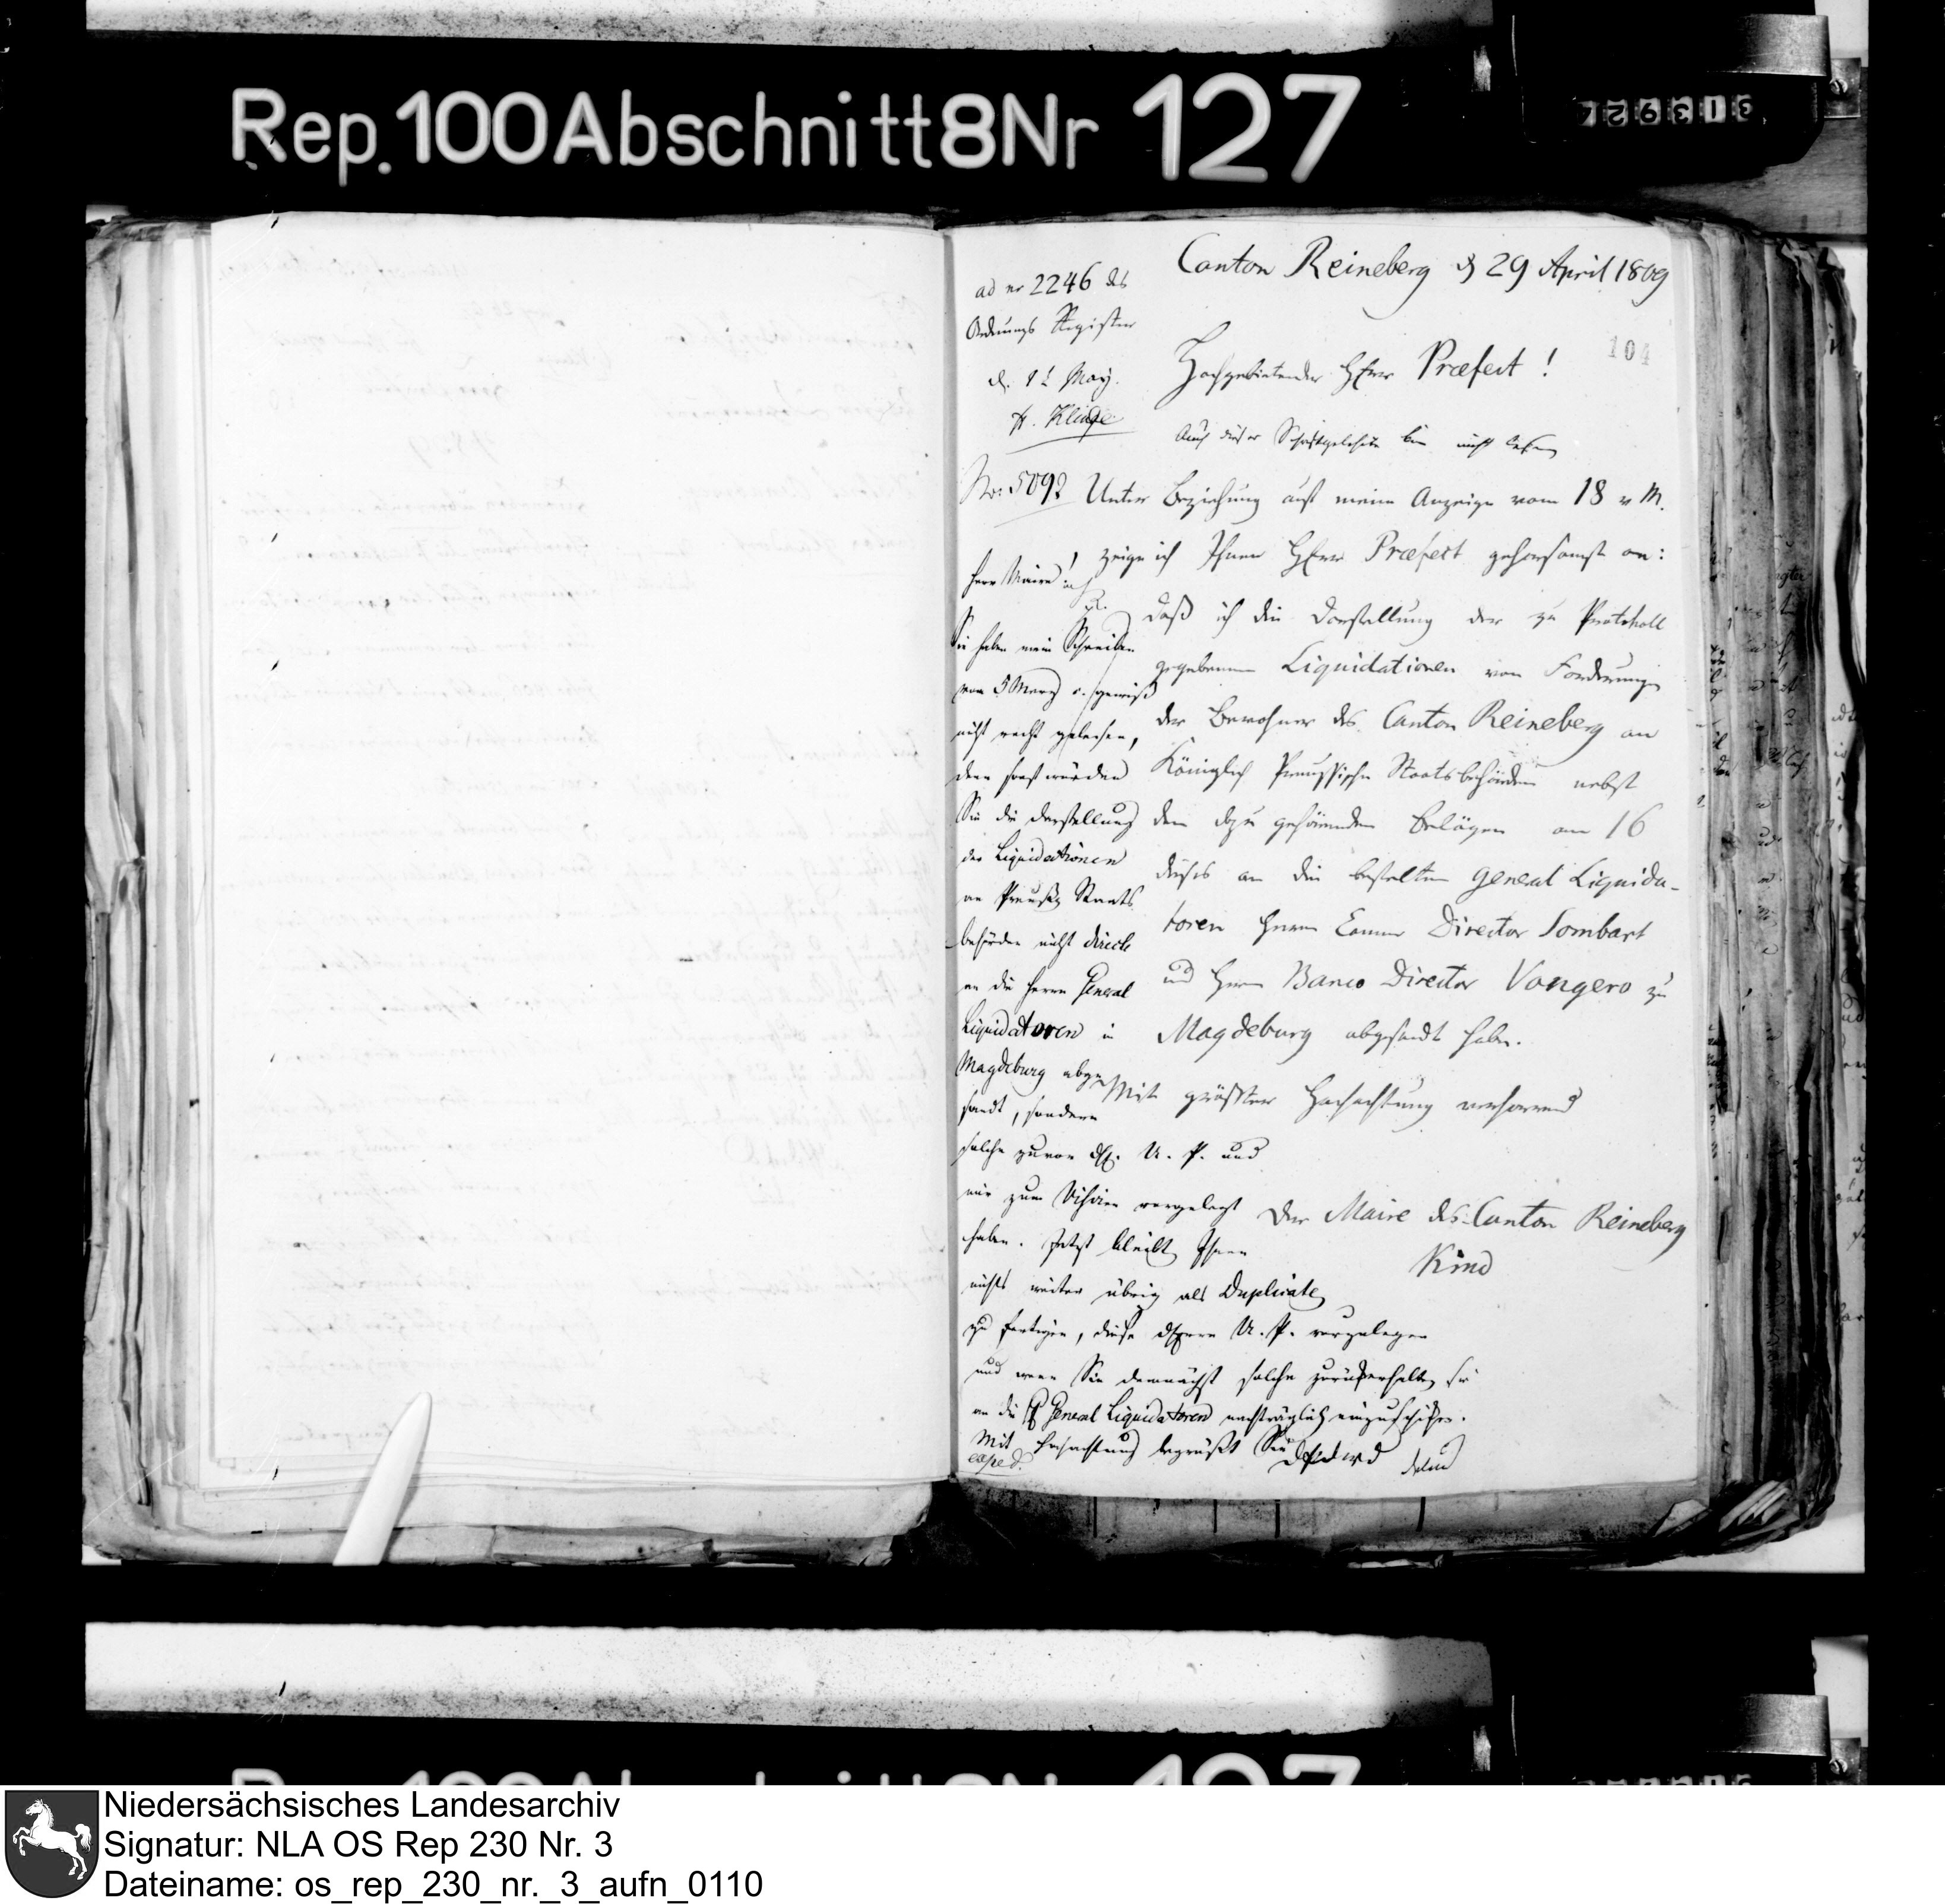 Rep. 100 Abschnitt 8 Nr 127
Canton Reineberg d 29 April 1809
104
Hochgebietender HErr Præfect !
ad nr 2246 des
Ordnungs Register
d. 12 May.
Kl. Klinge
No. 5092
Unter Beziehung auf meine Anzeige vom 18 v M.
zeige ich Ihnen HErr Præfect gehorsamst an:
daß ich die Darstellung der zu Protokoll
gegebenen Liquidationen von Forderungen
der Bewohner des Canton Reineberg an
Königlich Preussische Staatsbehörden nebst
den dazu gehörenden Belägen am 16
dieses an die bestelten General Liquida-
toren Herrn Director Sombart
und Herrn Banco Director Vangero zu
Magdeburg abgesandt habe.
Mit gröster Hochachtung verharrend
Der Maire des Canton Reineberg
Kind
Herr Maire !
Sie haben mein Schreiben
vom 5 Merz c. gewiß
nicht recht gelesen,
denn sonst würden
Sie die Darstellung
der Liquidationen
an Preuß. Staats
behörden nicht directe
an die Herrn General
Liquidatoren in
Magdeburg abge
sandt, sondern
solche zuvor dH. U. P. und
mir zum Visiren vorgelegt
haben. Jetzt bleibt Ihnen
nichts weiter übrig als Duplicate
zu fertigen, diese dHerrn U. P. vorzulegen
und wenn Sie demnächst solche zurückerhalten sie
an die H General Liquidatoren nachträglich einzuschicken.
Mit Hochachtung begrüßt Sie
exped.
Niedersächsisches Landesarchiv
Signatur: NLA OS Rep 230 Nr. 3
Dateiname: os_rep_230_nr._3_aufn_0110